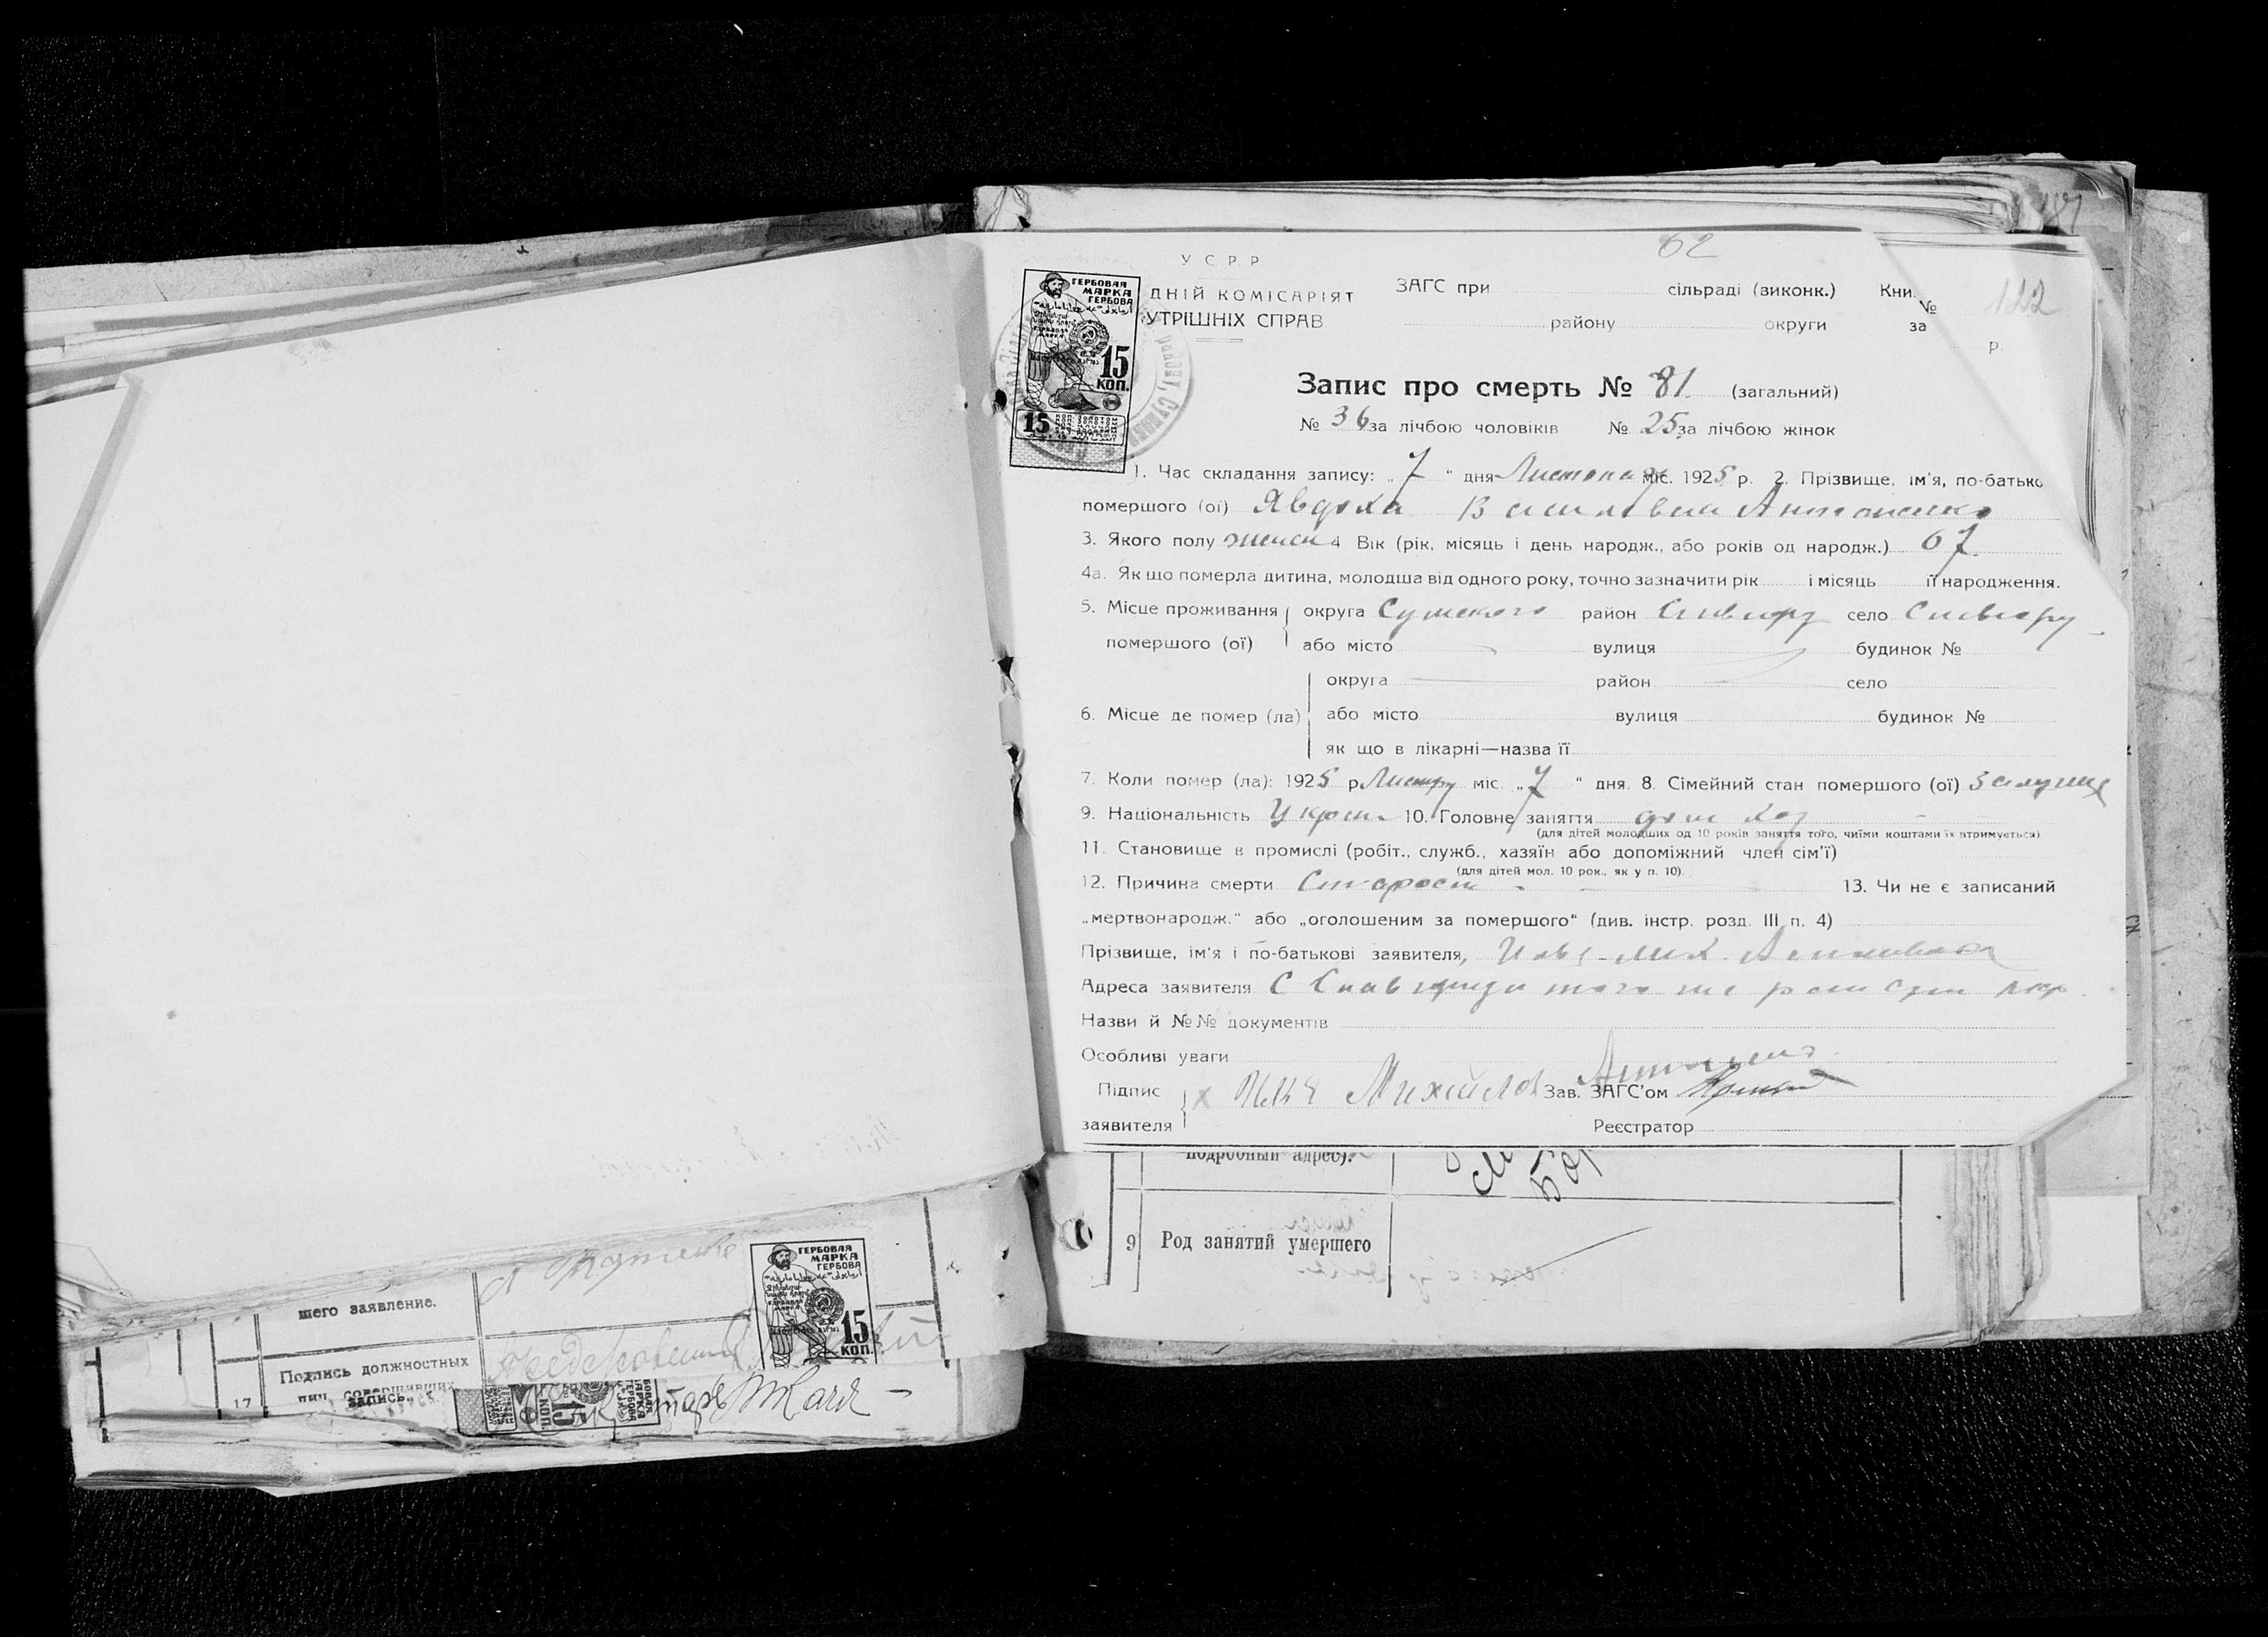 187
У С Р Р
62
ДНІЙ КОМІСАРІЯТ
УТРІШНІХ СПРАВ
ЗАГС при сільраді (виконк.) Кни. № 122
району округи за р.
ГЕРБОВАЯ
МАРКА
ГЕРБОВА
15
КОП.
15
Запис про смерть № 81 (загальний)
№ 36 за лічбою чоловіків № 25 за лічбою жінок
1. Час складання запису: „7“ дня Листопад міс. 1925 р. 2. Прізвище, ім'я, по-батько
помершого (ої) Явдоха Василовна Антоненко
3. Якого полу женск 4 Вік (рік, місяць і день народж., або років од народж.) 67
4а. Як що померла дитина, молодша від одного року, точно зазначити рік і місяць її народження.
5. Місце проживання округа Сумского район село
помершого (ої) або місто вулиця будинок №
округа район село
6. Місце де помер (ла) або місто вулиця будинок №
як що в лікарні—назва її
7. Коли помер (ла): 1925 р міс. „7“ дня. 8. Сімейний стан помершого (ої)
9. Національність Украин 10. Головне заняття дом хоз
(для дітей молодших од 10 років заняття того, чиїми коштами їх втримується)
11. Становище в промислі (робіт., служб., хазяїн або допоміжний член сім'ї)
(для дітей мол. 10 рок., як у п. 10).
12. Причина смерти Старость 13. Чи не є записаний
„мертвонародж.“ або „оголошеним за помершого“ (див. інстр. розд. III п. 4)
Прізвище, ім'я і по-батькові заявителя,
Адреса заявителя С того же
Назви й №№ документів
Особливі уваги
Підпис х Илья Михайлов Антоненко Зав. ЗАГС'ом
заявителя Реєстратор
подробный адрес).
9 Род занятий умершего
шего заявление.
17 Подпись должностных
лиц, совершивших
запись.
ГЕРБОВАЯ
МАРКА
ГЕРБОВА
15
КОП.